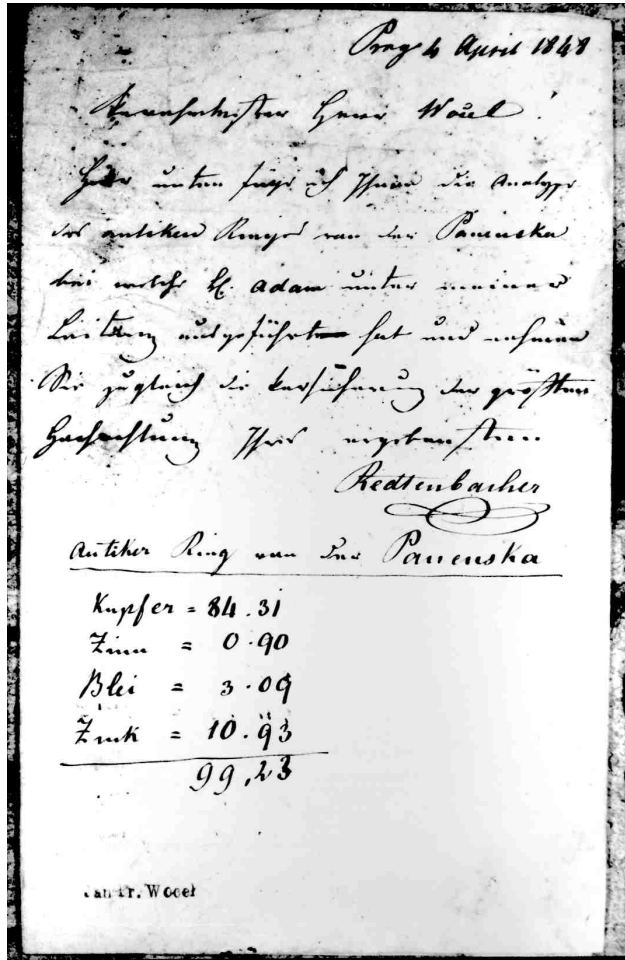 Prag 4 April 1848
Verehrtester Herr Wocel!
Hier unten füge ich Ihnen die Analyse
des antiken Ringes von der Panenska
bei welche H. Adam unter meiner
Leitung ausgeführt hat und nehmen
Sie zugleich die Versicherung der größten
Hochachtung Ihres ergebensten
Redtenbacher
Antiker Ring von der Panenska
Kupfer = 84.31
Zinn = 0.90
Blei = 3.09
Zink = 10.93
99,23
Jan Er. Wocel